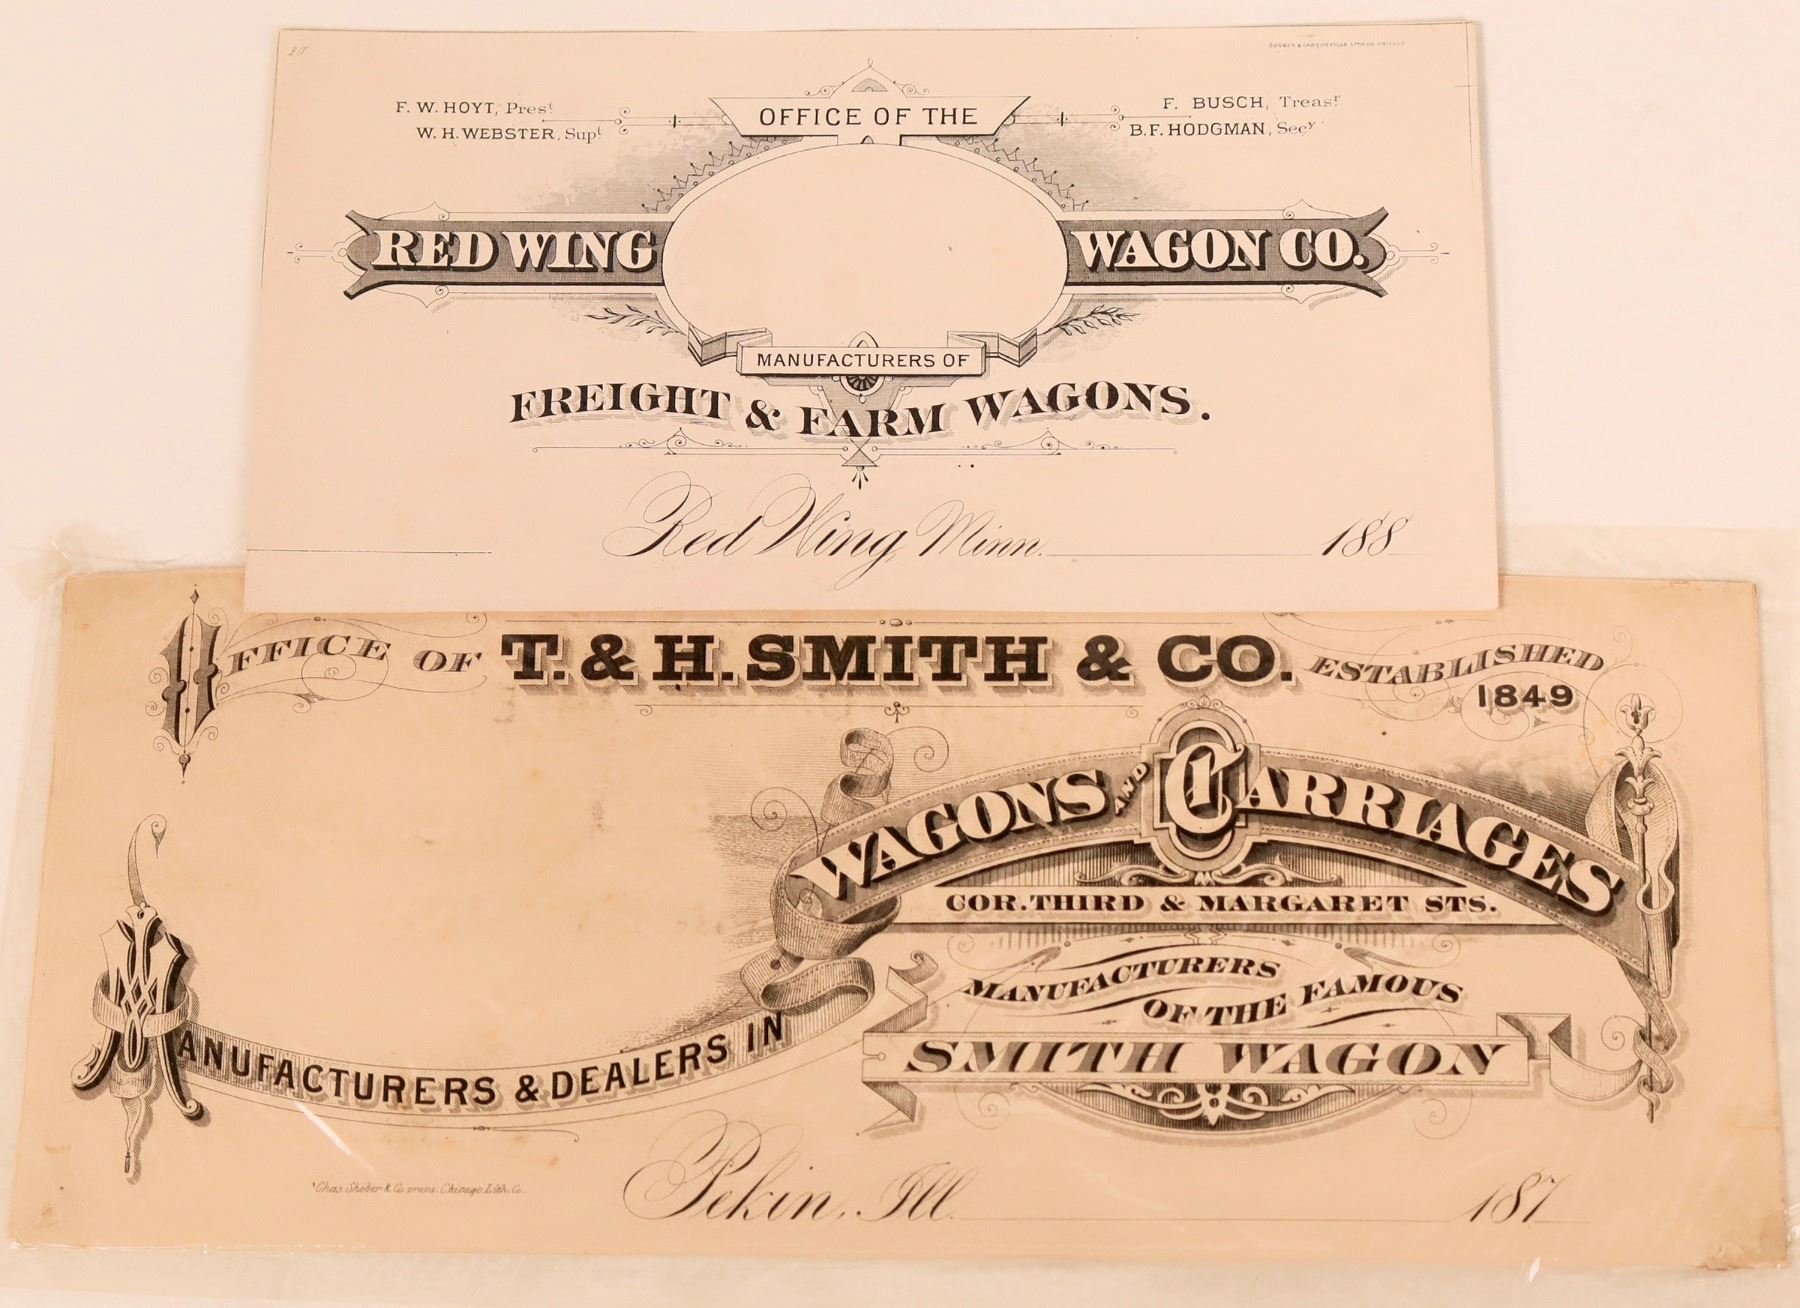 20
SHOBER & CARQUEVILLE LITH. CO. CHICAGO
F. W. HOYT, Prest.
W. H. WEBSTER, Supt
F. BUSCH, Treasr
B. F. HODGMAN, Secy
OFFICE OF THE
RED WING WAGON CO.
MANUFACTURERS OF
FREIGHT & FARM WAGONS.
Red Wing, Minn. 188
OFFICE OF T. & H. SMITH & CO. ESTABLISHED
1849
WAGONS AND CARRIAGES
COR. THIRD & MARGARET STS.
MANUFACTURERS
OF THE FAMOUS
SMITH WAGON
MANUFACTURERS & DEALERS IN
Chas. Shober & Co. props. Chicago Lith. Co.
Pekin, Ill. 187